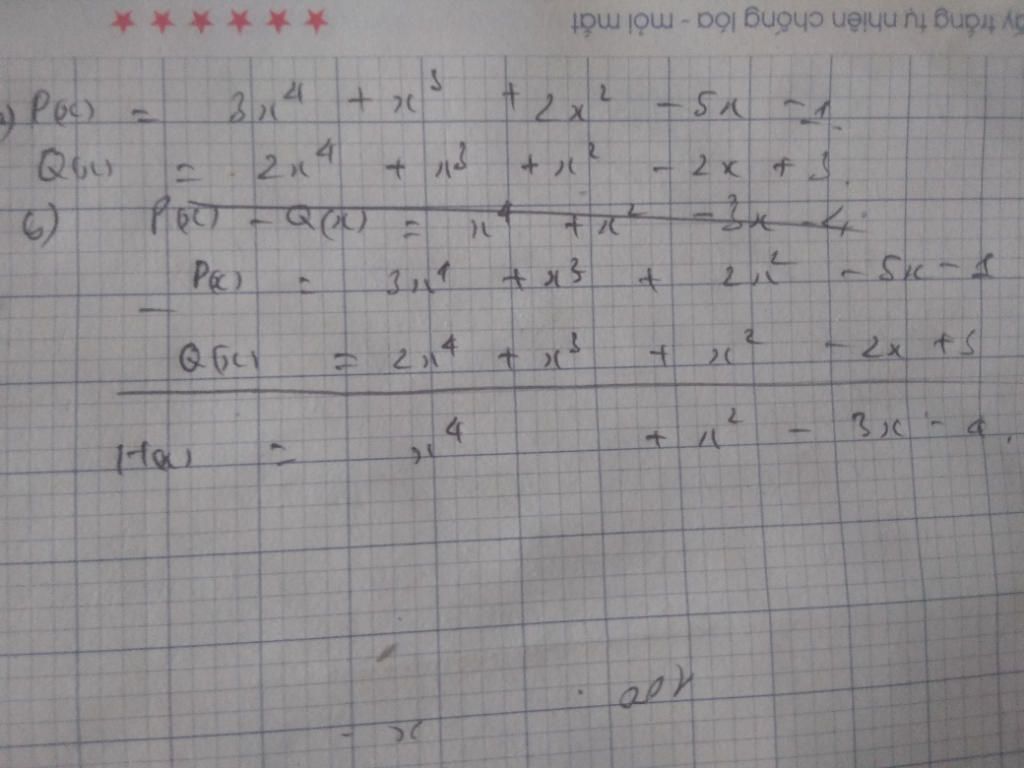 ấy trắng tự nhiên chống lóa - mỏi mắt
a) P(x) = 3x⁴ + x³ + 2x² - 5x - 1
Q(x) = 2x⁴ + x³ + x² - 2x + 3
b) P(x) - Q(x) = x⁴ + x² - 3x - 4
P(x) = 3x⁴ + x³ + 2x² - 5x - 1
-
Q(x) = 2x⁴ + x³ + x² - 2x + 3
H(x) = x⁴ + x² - 3x - 4.
- x